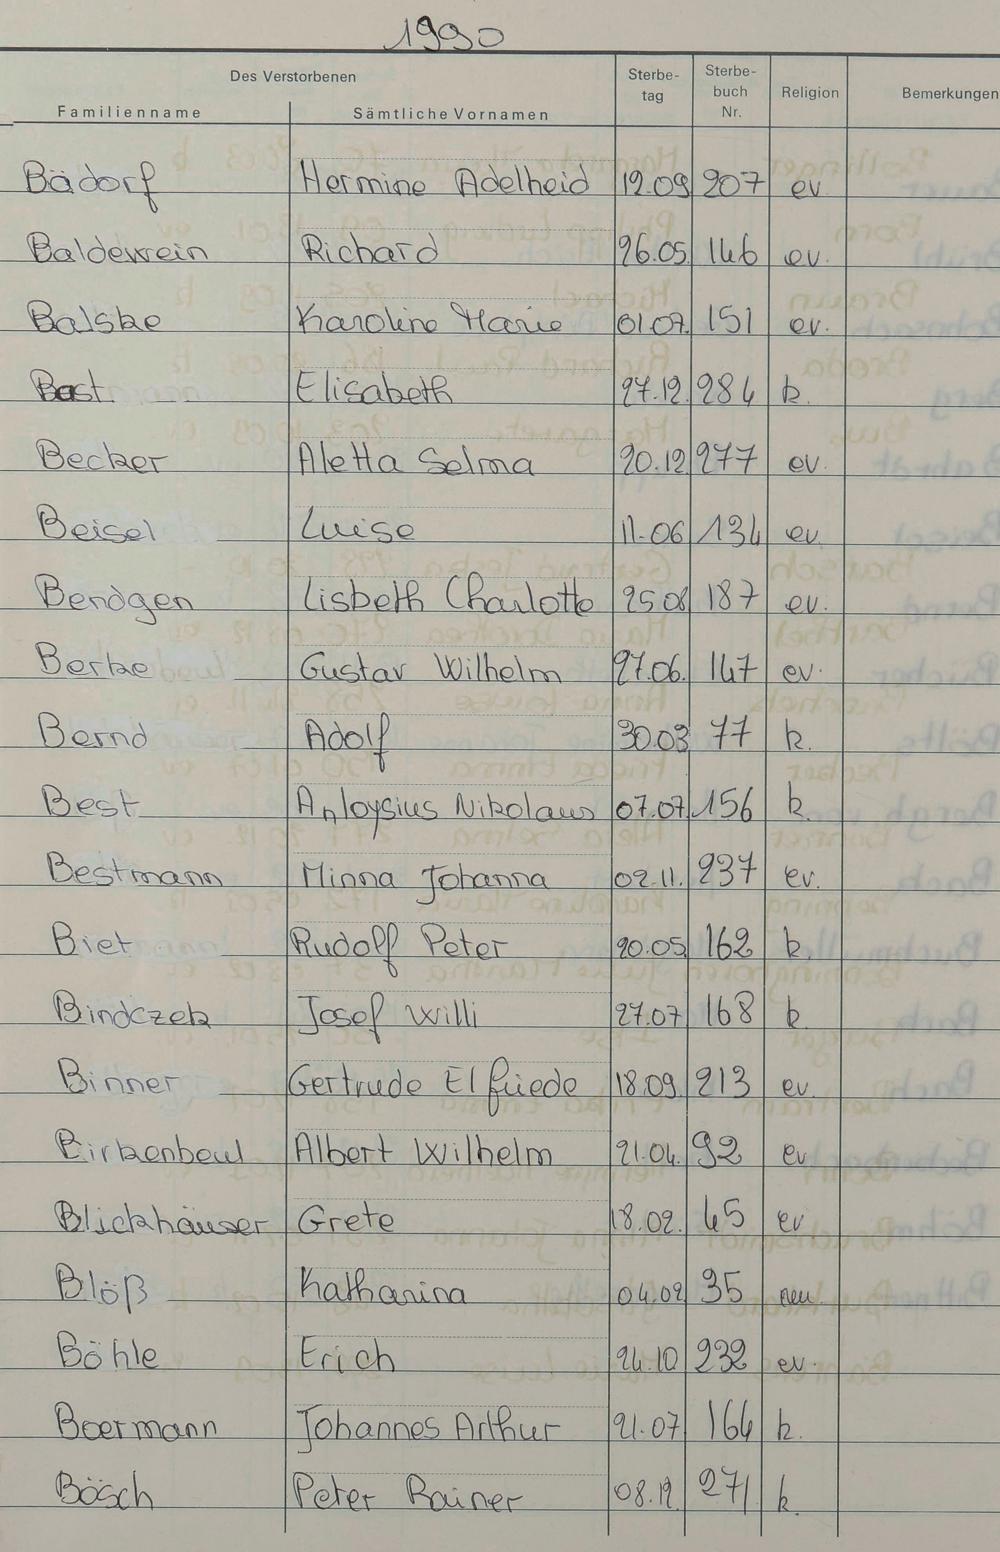 1990
Des Verstorbenen
Familienname Sämtliche Vornamen Sterbe-tag Sterbe-buch Nr. Religion Bemerkungen
Bädorf Hermine Adelheid 12.09 207 ev.
Baldewein Richard 26.05. 146 ev.
Balske Karoline Marie 01.07. 151 ev.
Bast Elisabeth 27.12. 284 k.
Becker Aletta Selma 20.12 277 ev.
Beisel Luise 11.06 134 ev.
Bendgen Lisbeth Charlotte 25.08 187 ev.
Berke Gustav Wilhelm 27.06. 147 ev.
Bernd Adolf 30.03 77 k.
Best Aloysius Nikolaus 07.07. 156 k.
Bestmann Minna Johanna 02.11. 237 ev.
Biet Rudolf Peter 20.05 162 k.
Bindczek Josef Willi 27.07 168 k.
Binner Gertrude Elfriede 18.09. 213 ev.
Birkenbeul Albert Wilhelm 21.04. 92 ev
Blickhäuser Grete 18.02. 45 ev
Blöß Katharina 04.02 35 neu.
Böhle Erich 24.10 232 ev.
Boermann Johannes Arthur 21.07 164 k.
Bösch Peter Rainer 08.12. 271 k.